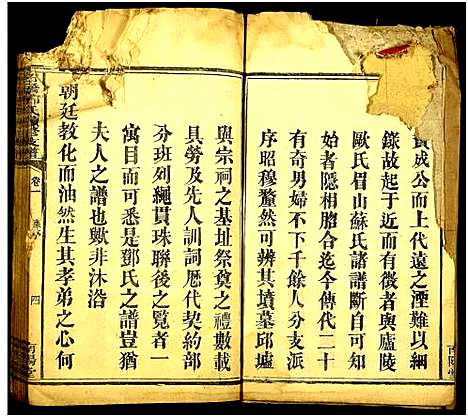 成公而上代遠之湮難以綱
錄故起于近而有徵者與廬陵
歐氏眉山蘇氏諸譜斷自可知
始者隱相脗合迄今傳代二十
有奇男婦不下千餘人分支派
序昭穆釐然可辨其墳墓邱墟
與宗祠之基址祭奠之禮數載
具勞及先人訓詞厯代契約部
分班列繩貫珠聯後之覽者一
寓目而可悉是鄧氏之譜豈猶
夫人之譜也歟非沐浴
朝廷教化而油然生其孝弟之心何
卷一
四
南陽堂